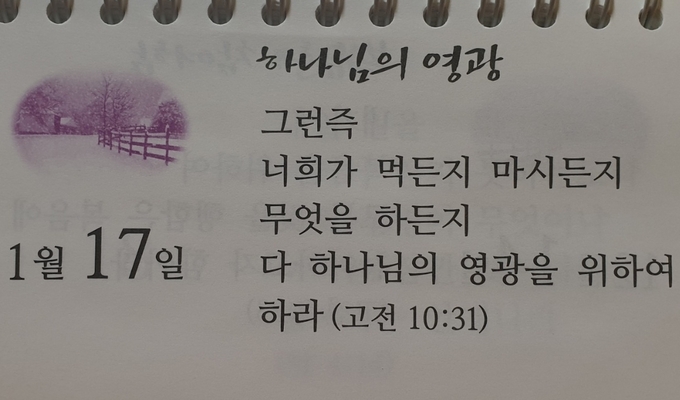 하나님의 영광
그런즉
너희가 먹든지 마시든지
무엇을 하든지
다 하나님의 영광을 위하여
하라 (고전 10:31)
1월 17일